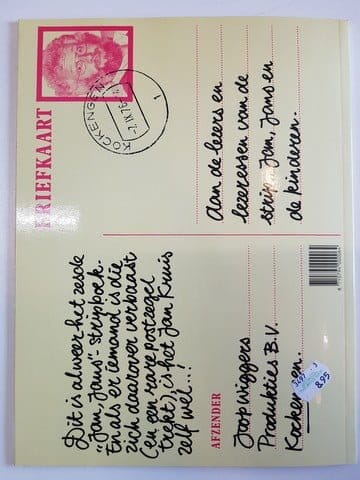 BRIEFKAART
KOCKENGEN
Dit is alweer het zesde
"Jan, Jans"-stripboek.
En als er iemand is die
zich daarover verbaast
(en een rare postzegel
trekt), is het Jan Kruis
zelf wel...!
Aan de lezers en
lezeressen van de
strip Jan, Jans en
de kinderen.
AFZENDER
Joop Wiggers
Produkties B.V.
Kockengen.
8.95